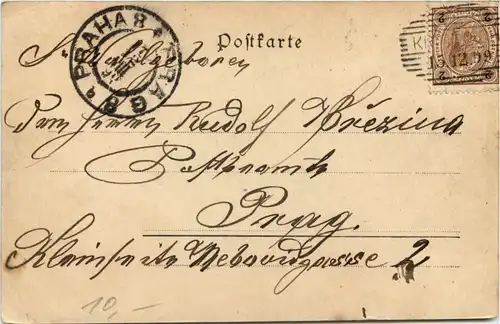 Postkarte
PRAHA 8 * PRAG 8
2 2
13 12 99
Sr. Wohlgeboren
Dem Herrn Rudolf Březina
Postbeamte
Prag.
Kleinseite Nebovidgasse 2
10,-